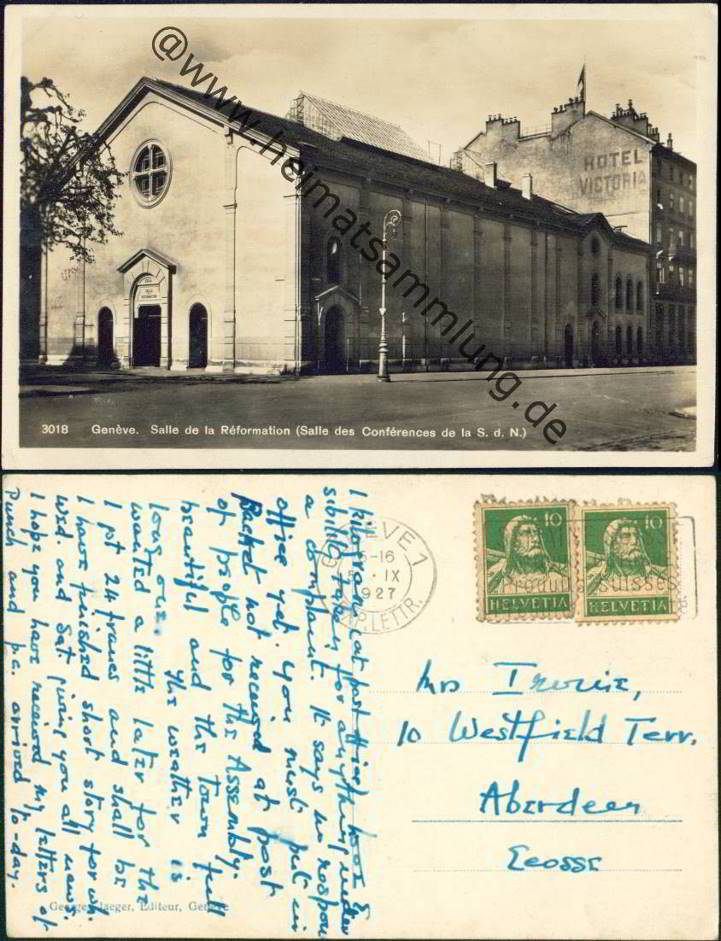 @www.heimatsammlung.de
HOTEL
VICTORIA
3018 Genève. Salle de la Réformation (Salle des Conférences de la S. d. N.)
Punch and p.c. arrived to-day.
I hope you have received my letters of
Wed. and Sat. giving you all news.
I have finished short story for wh.
I got 24 francs and shall be
wanted a little later for the
long one. The weather is
beautiful and the town full
of people for the Assembly.
Packet not received at post
office yet. You must put in
a complaint. It says no respon
sibility taken for anything under
1 kilogram (at post office) book &
GENÈVE 1
-16
IX
1927
EXP. LETTR.
Produits Suisses
10
HELVETIA
10
HELVETIA
Mrs Irvine,
10 Westfield Terr.
Aberdeen
Ecosse
Georges Jaeger, Editeur, Genève